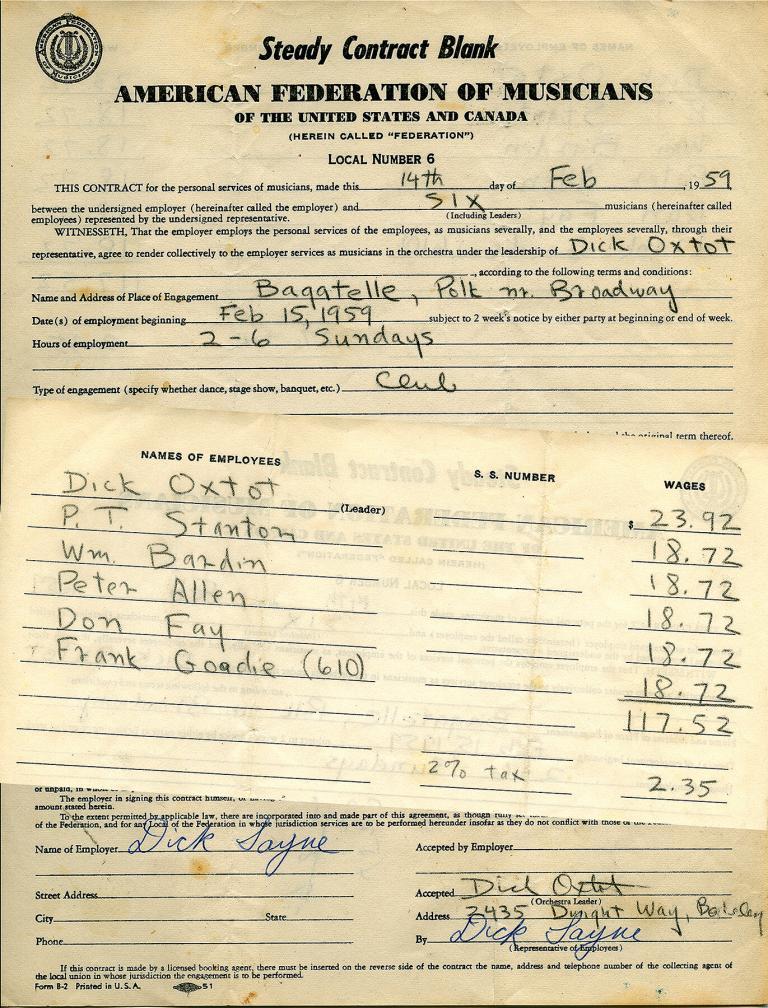 Steady Contract Blank
AMERICAN FEDERATION OF MUSICIANS
OF THE UNITED STATES AND CANADA
(HEREIN CALLED "FEDERATION")
LOCAL NUMBER 6
THIS CONTRACT for the personal services of musicians, made this 14th day of Feb, 1959
between the undersigned employer (hereinafter called the employer) and SIX musicians (hereinafter called
(Including Leaders)
employees) represented by the undersigned representative.
WITNESSETH, That the employer employs the personal services of the employees, as musicians severally, and the employees severally, through their
representative, agree to render collectively to the employer services as musicians in the orchestra under the leadership of Dick Oxtot
, according to the following terms and conditions:
Name and Address of Place of Engagement Bagatelle, Polk nr. Broadway
Date(s) of employment beginning Feb 15, 1959 subject to 2 week's notice by either party at beginning or end of week.
Hours of employment 2-6 Sundays
Type of engagement (specify whether dance, stage show, banquet, etc.) Club
original term thereof.
NAMES OF EMPLOYEES S. S. NUMBER WAGES
Dick Oxtot (Leader) $ 23.92
P. T. Stanton 18.72
Wm. Bardin 18.72
Peter Allen 18.72
Don Fay 18.72
Frank Goudie (610) 18.72
117.52
2% tax 2.35
or unpaid, in
The employer in signing this contract himself,
amount stated herein.
To the extent permitted by applicable law, there are incorporated into and made part of this agreement, as though fully
of the Federation, and for any Local of the Federation in whose jurisdiction services are to be performed hereunder insofar as they do not conflict with those
Name of Employer Dick Sayne Accepted by Employer
Street Address Accepted Dick Oxtot
(Orchestra Leader)
City State Address 2435 Dwight Way,
Phone By Dick Sayne
(Representative of Employees)
If this contract is made by a licensed booking agent, there must be inserted on the reverse side of the contract the name, address and telephone number of the collecting agent of
the local union in whose jurisdiction the engagement is to be performed.
Form B-2 Printed in U. S. A. 51